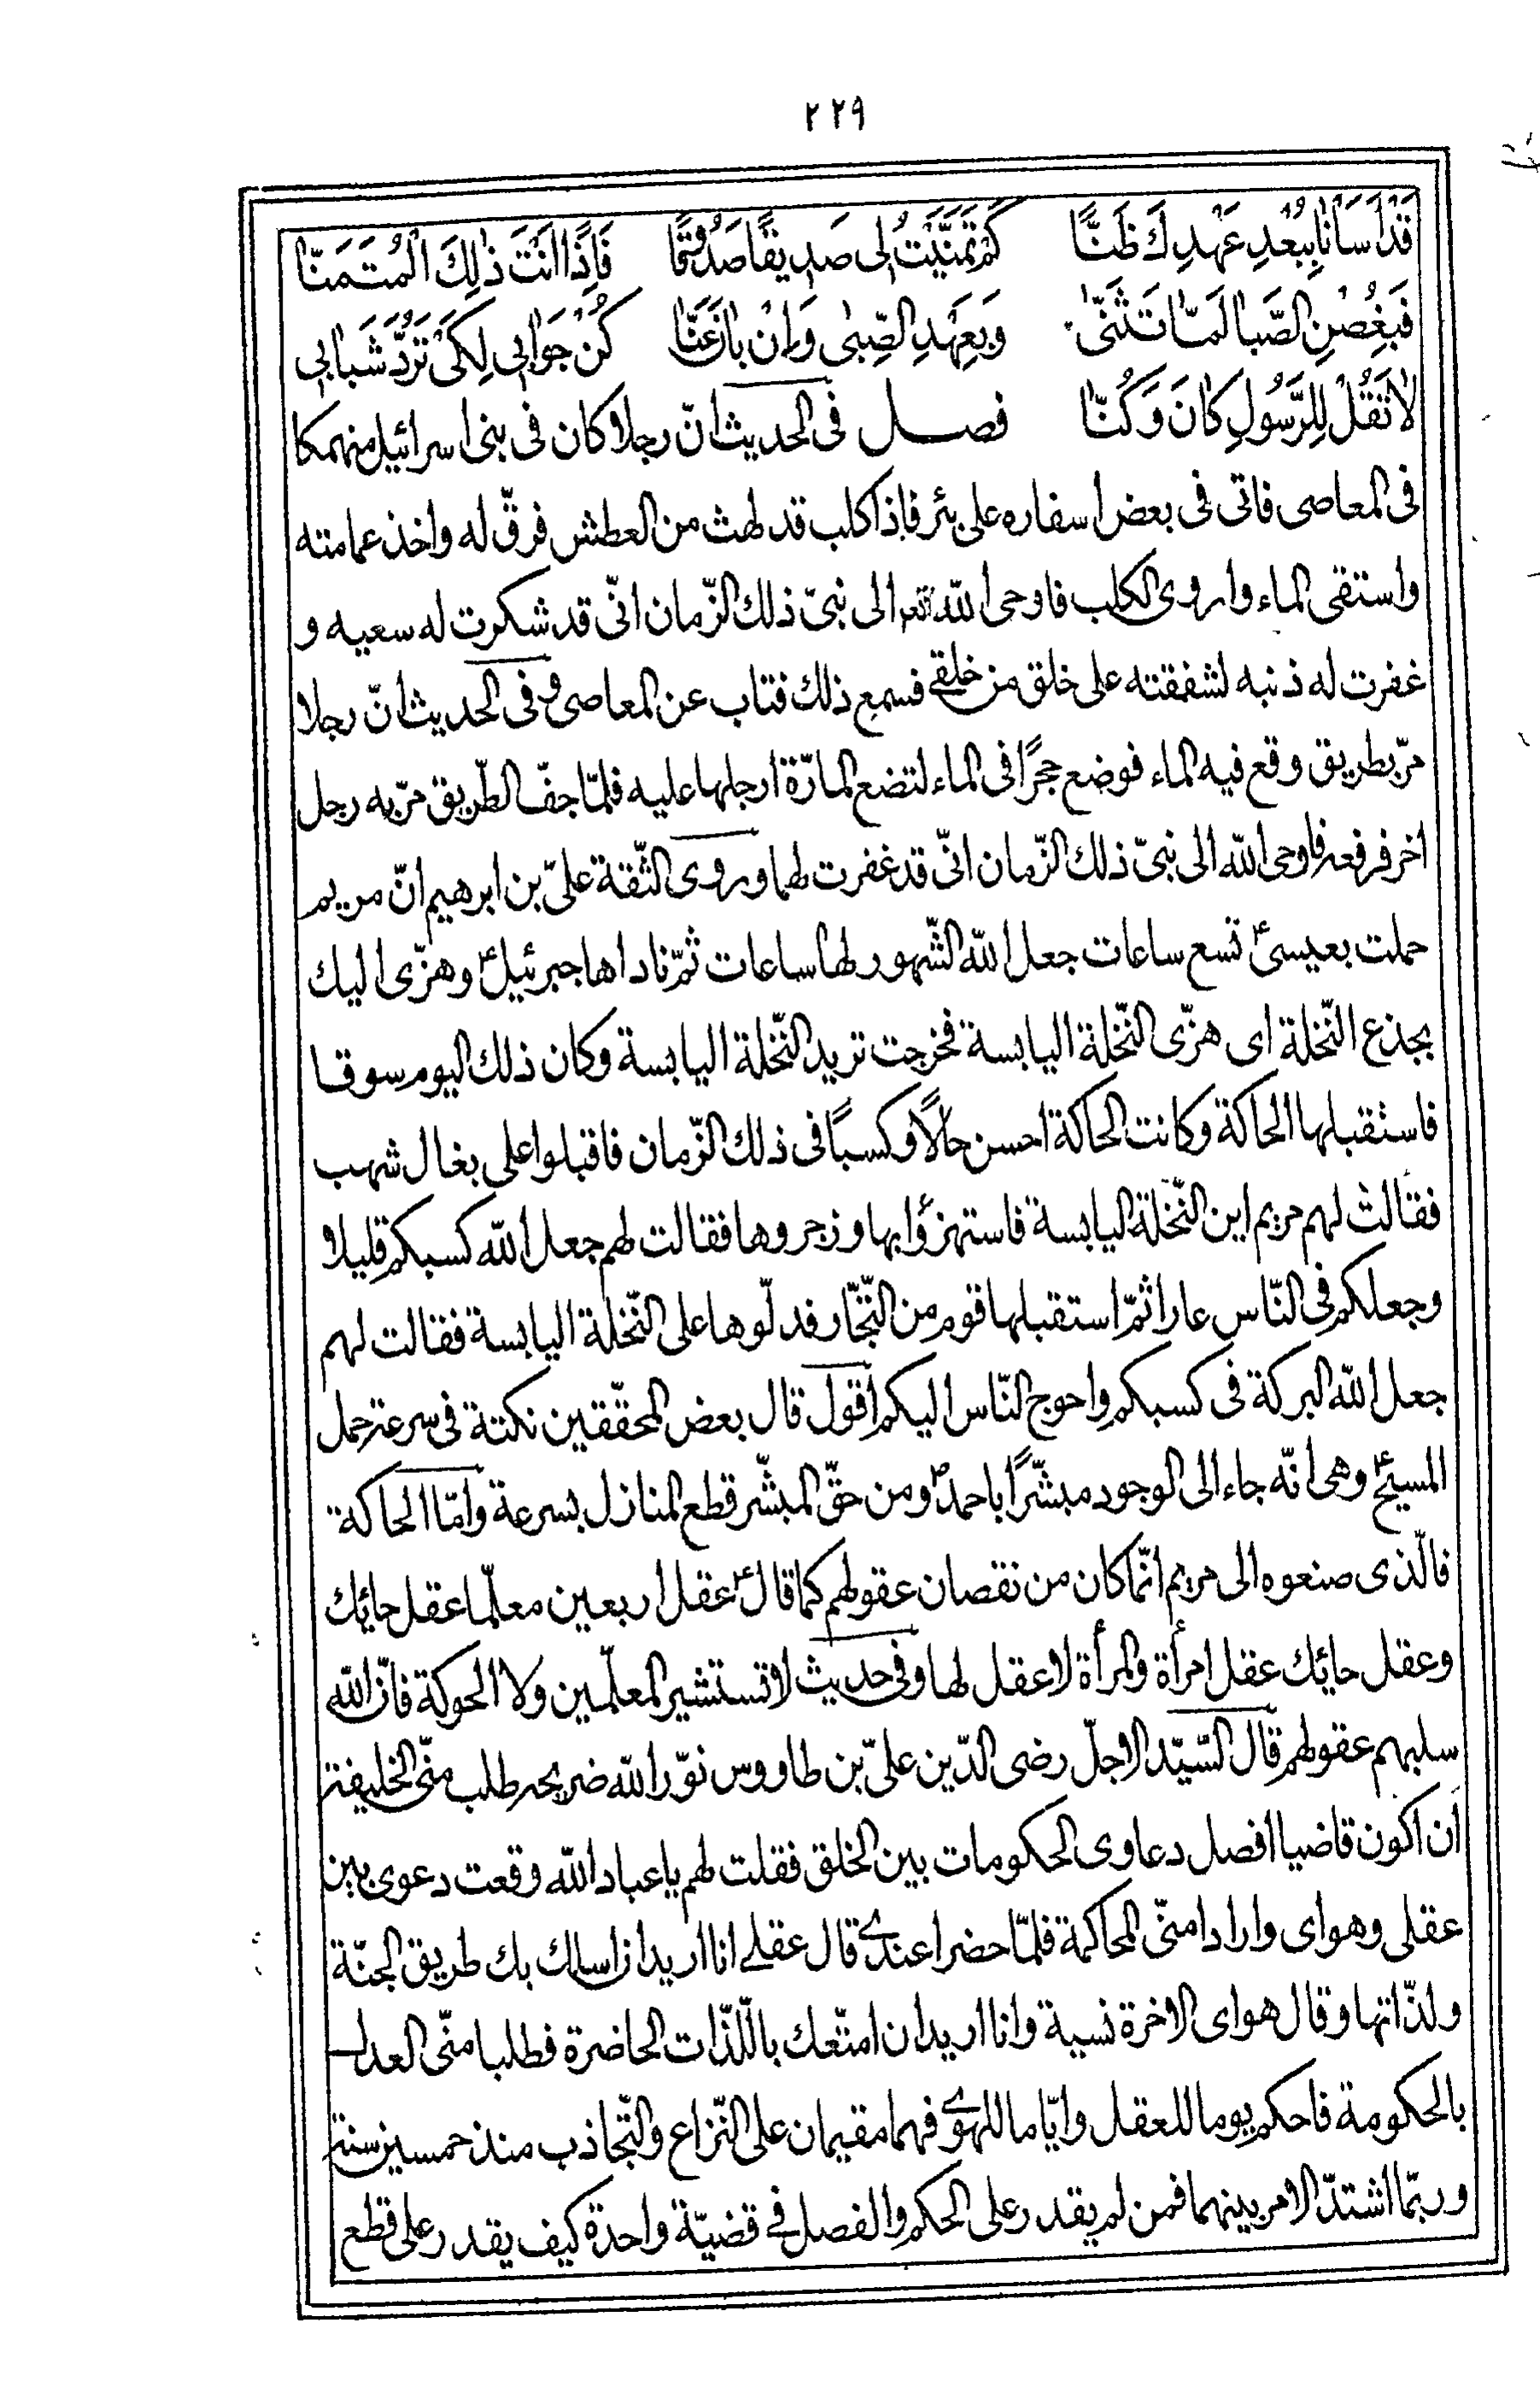 ٢٢٩
قَدْ اَسَأنَا بِبُعْدِ عَهْدِكَ ظَنًّا كَمْ تَمَنَّيْتُ لِى صَدِيقًا صَدُوقًا فَاِذًا اَنْتَ ذٰلِكَ الْمُتَمَنّٰا
فَبِغُصْنِ الصَّبا لَمّا تَثَنّٰى وَبِعَهْدِ الصِّبٰى وَاِنْ بانَ عَنّٰا كُنْ جَوابِى لِكَىْ تَرُدَّ شَبابِى
لا تَقُلْ لِلرَّسُولِ كانَ وَكُنّا فصـــل فى الحديث انّ رجلا كان فى بنى اسرائيل منهمكا
فى المعاصى فاتى فى بعض اسفاره على بئر فاذا كلب قد لهث من العطش فرقّ له واخذ عمامته
واستقى الماء واروى الكلب فاوحى اللّه تعه الى نبىّ ذلك الزّمان انّى قد شكرت له سعيه و
غفرت له ذنبه لشفقته على خلق من خلقى فسمع ذلك فتاب عن المعاصى وفى الحديث انّ رجلا
مرّ بطريق وقع فيه الماء فوضع حجرًا فى الماء لتضع المارّة ارجلها عليه فلمّا جفّ الطّريق مرّ به رجل
اخر فرفعه فاوحى اللّه الى نبىّ ذلك الزّمان انّى قد غفرت لهما وروى الثّقة علىّ بن ابرهيم انّ مريم
حملت بعيسىؑ تسع ساعات جعل اللّه الشّهور لها ساعات ثمّ ناداها جبرئيلؑ وهزّى اليك
بجذع النّخلة اى هزّى النّخلة اليابسة فخرجت تريد النّخلة اليابسة وكان ذلك اليوم سوقا
فاستقبلها الحاكة وكانت الحاكة احسن حالًا وكسبًا فى ذلك الزّمان فاقبلوا على بغال شهب
فقالت لهم مريم اين النّخلة اليابسة فاستهزؤا بها وزجروها فقالت لهم جعل اللّه كسبكم قليلا
وجعلكم فى النّاس عارا ثمّ استقبلها قوم من التّجّار فدلّوها على النّخلة اليابسة فقالت لهم
جعل اللّه البركة فى كسبكم واحوج النّاس اليكم اقول قال بعض المحقّقين نكتة فى سرعة حمل
المسيحؑ وهى انّه جاء الى الوجود مبشّرًا باحمدؐ ومن حقّ المبشّر قطع المنازل بسرعة وامّا الحاكة
فالّذى صنعوه الى مريم انّما كان من نقصان عقولهم كما قالؑ عقل اربعين معلّما عقل حائك
وعقل حائك عقل امرأة والمرأة لا عقل لها وفى حديث لا تستشير المعلّمين ولا الحوكة فانّ اللّه
سلبهم عقولهم قال السّيّد الاجلّ رضى الدّين علىّ بن طاووس نوّر اللّه ضريحه طلب منّى الخليفة
ان اكون قاضيا افصل دعاوى الحكومات بين الخلق فقلت لهم يا عباد اللّه وقعت دعوى بين
عقلى وهواى وارادا منّى المحاكمة فلمّا حضرا عندى قال عقلى انا اريد ان اسلك بك طريق الجنّة
ولذّاتها وقال هواى الاخرة نسية وانا اريد ان امتّعك باللّذّات الحاضرة فطلبا منّى العدل
بالحكومة فاحكم يوما للعقل وايّاما للهوى فهما مقيمان على النّزاع والتّجاذب منذ خمسين سنة
وربّما اشتدّ الامر بينهما فمن لم يقدر على الحكم والفصل فى قضيّة واحدة كيف يقدر على قطع